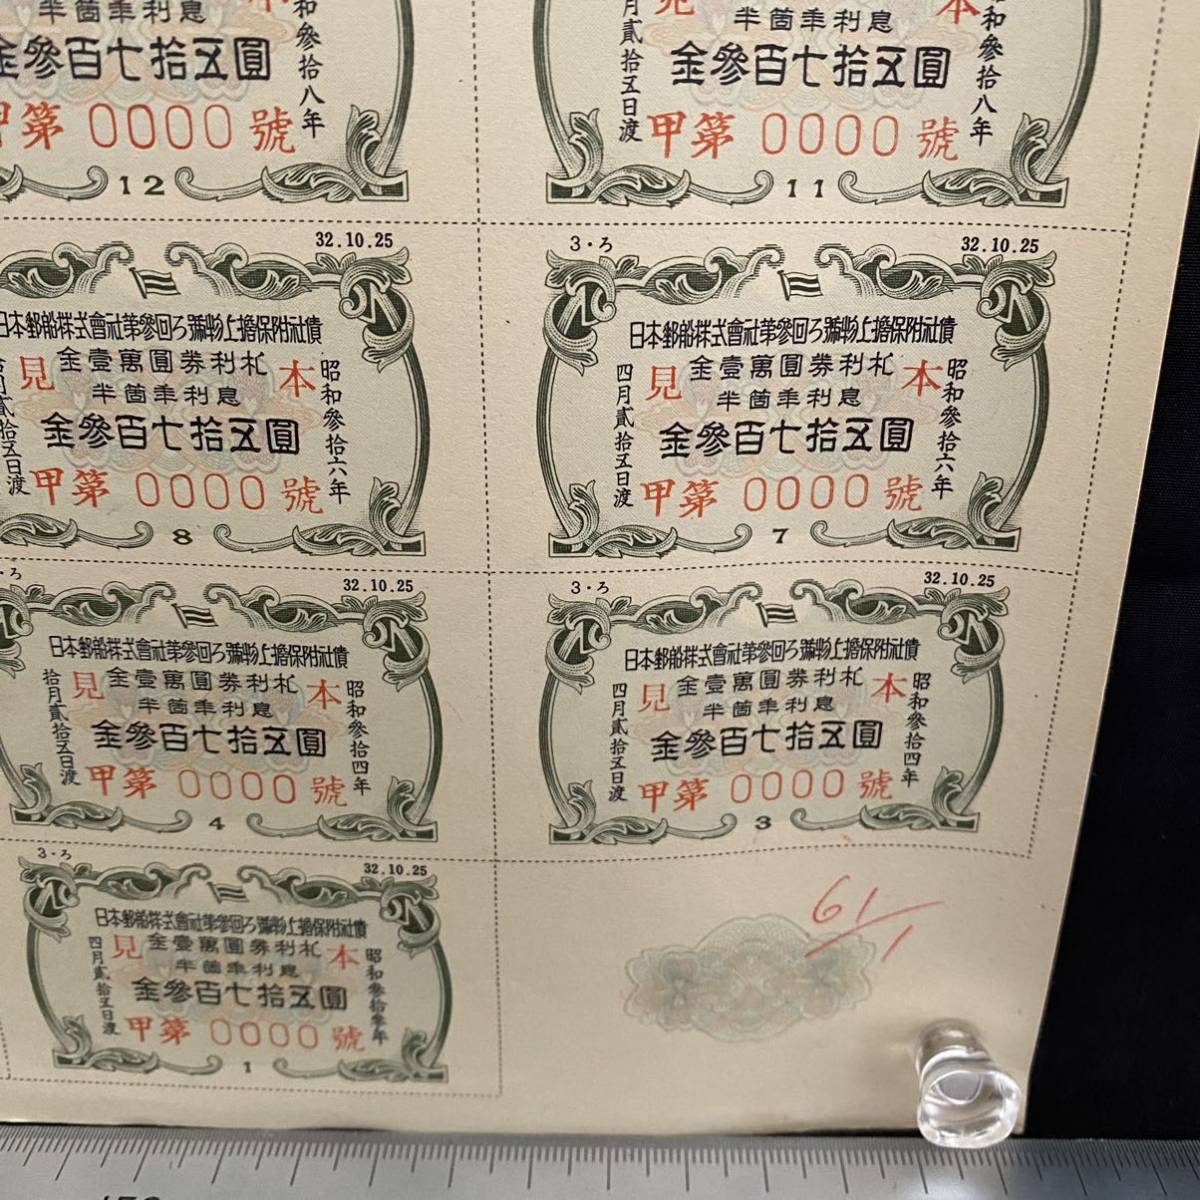 半箇年利息
金參百七拾五圓
昭和參拾八年
甲第 0000 號
12
見 本
半箇年利息
金參百七拾五圓
昭和參拾八年
四月貳拾五日渡
甲第 0000 號
11
32.10.25
日本郵船株式會社第參回ろ號物上擔保附社債
見 本
金壹萬圓券利札
半箇年利息
金參百七拾五圓
昭和參拾六年
拾月貳拾五日渡
甲第 0000 號
8
3・ろ
32.10.25
日本郵船株式會社第參回ろ號物上擔保附社債
見 本
金壹萬圓券利札
半箇年利息
金參百七拾五圓
昭和參拾六年
四月貳拾五日渡
甲第 0000 號
7
・ろ
32.10.25
日本郵船株式會社第參回ろ號物上擔保附社債
見 本
金壹萬圓券利札
半箇年利息
金參百七拾五圓
昭和參拾四年
拾月貳拾五日渡
甲第 0000 號
4
3・ろ
32.10.25
日本郵船株式會社第參回ろ號物上擔保附社債
見 本
金壹萬圓券利札
半箇年利息
金參百七拾五圓
昭和參拾四年
四月貳拾五日渡
甲第 0000 號
3
3・ろ
32.10.25
日本郵船株式會社第參回ろ號物上擔保附社債
見 本
金壹萬圓券利札
半箇年利息
金參百七拾五圓
昭和參拾參年
四月貳拾五日渡
甲第 0000 號
1
61/1